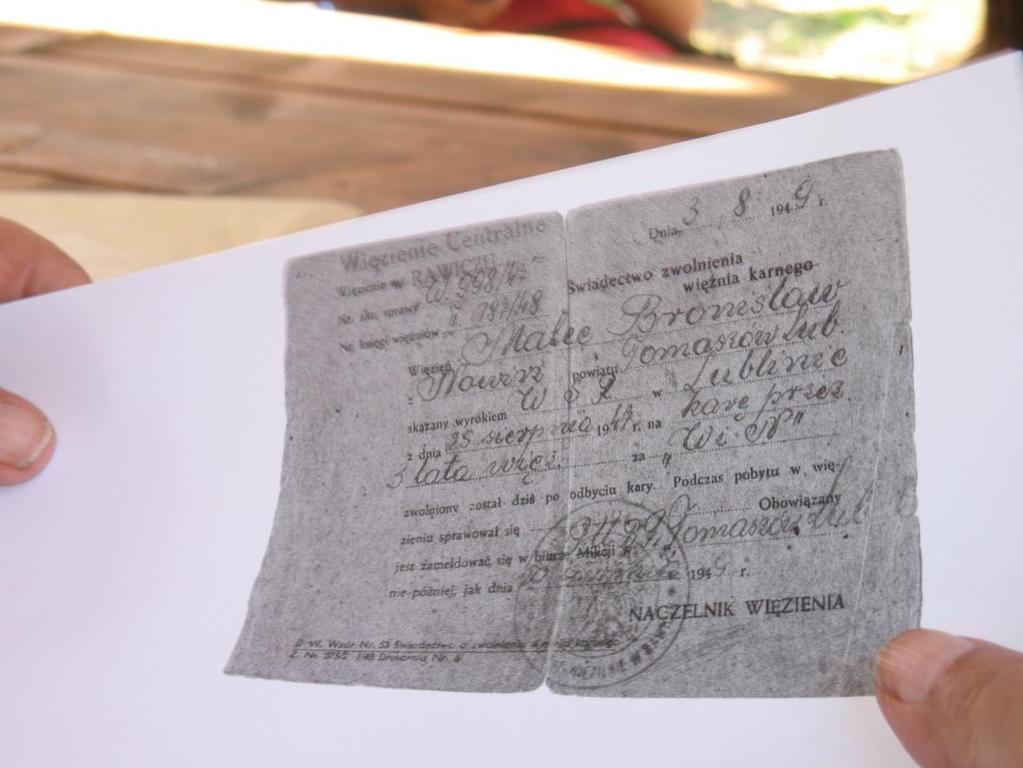 Dnia 3 8 1949 r.
Więzienie Centralne
Więzienie w RAWICZU
Świadectwo zwolnienia
więźnia karnego
Nr. akt. sprawy W. 998/47
Nr. księgi więźniów II 183/48
Więzień Malec Bronisław
z powiatu Tomaszów Lub.
skazany wyrokiem W S R w Lublinie
z dnia 25 sierpnia 1947 r. na karę przez
3 lata więz. za "WiN"
zwolniony został dziś po odbyciu kary. Podczas pobytu w wię-
zieniu sprawował się Obowiązany
jest zameldować się w biurze Milicji Tomaszów Lub
nie później, jak dnia 1949 r.
NACZELNIK WIĘZIENIA
D. W. Wzór Nr. 53 Świadectwo o zwolnieniu
Drukarnia Nr. 6